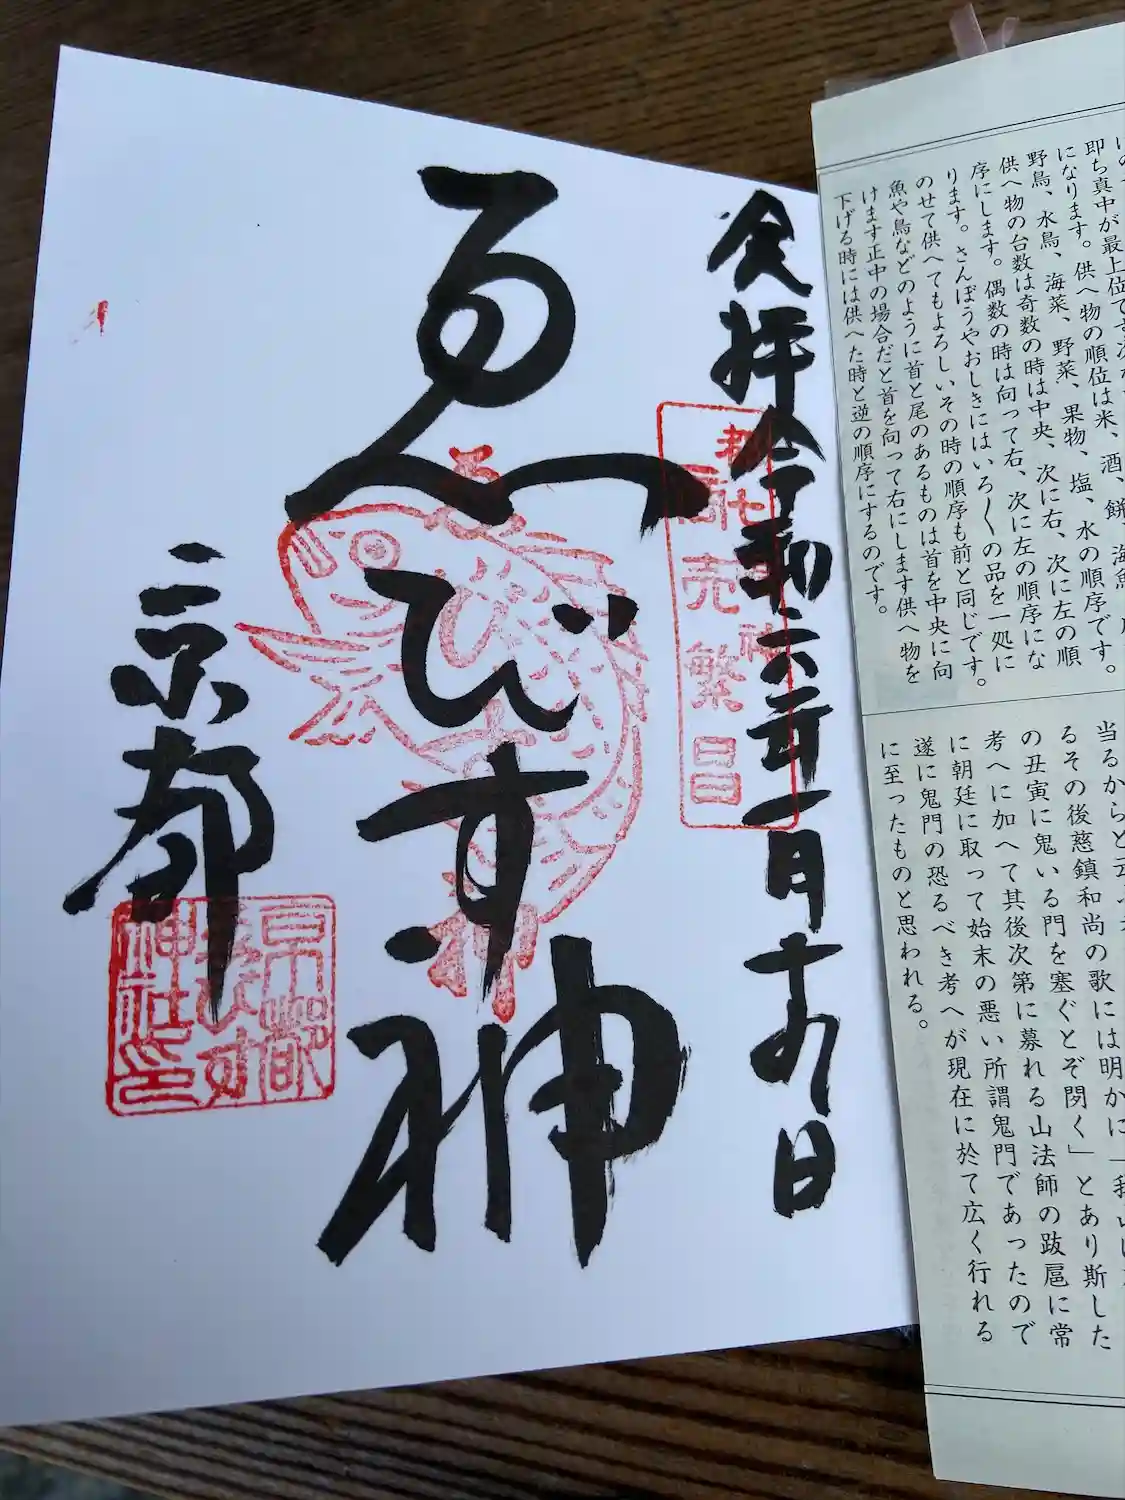 奉拝 令和六年一月十九日
都七福神
商売繁昌
ゑびす神
ゑ
神
京都
京都
ゑびす
神社印
即ち真中が最上位です
になります。供へ物の順位は米、酒、餅、海魚、
野鳥、水鳥、海菜、野菜、果物、塩、水の順序です。
供へ物の台数は奇数の時は中央、次に右、次に左の順
序にします。偶数の時は向って右、次に左の順序にな
ります。さんぼうやおしきにはいろ〱の品を一処に
のせて供へてもよろしいその時の順序も前と同じです。
魚や鳥などのように首と尾のあるものは首を中央に向
けます正中の場合だと首を向って右にします供へ物を
下げる時には供へた時と逆の順序にするのです。
当るからと云
るその後慈鎮和尚の歌には明かに「我山は
の丑寅に鬼いる門を塞ぐとぞ聞く」とあり斯した
考へに加へて其後次第に募れる山法師の跋扈に常
に朝廷に取って始末の悪い所謂鬼門であったので
遂に鬼門の恐るべき考へが現在に於て広く行れる
に至ったものと思われる。